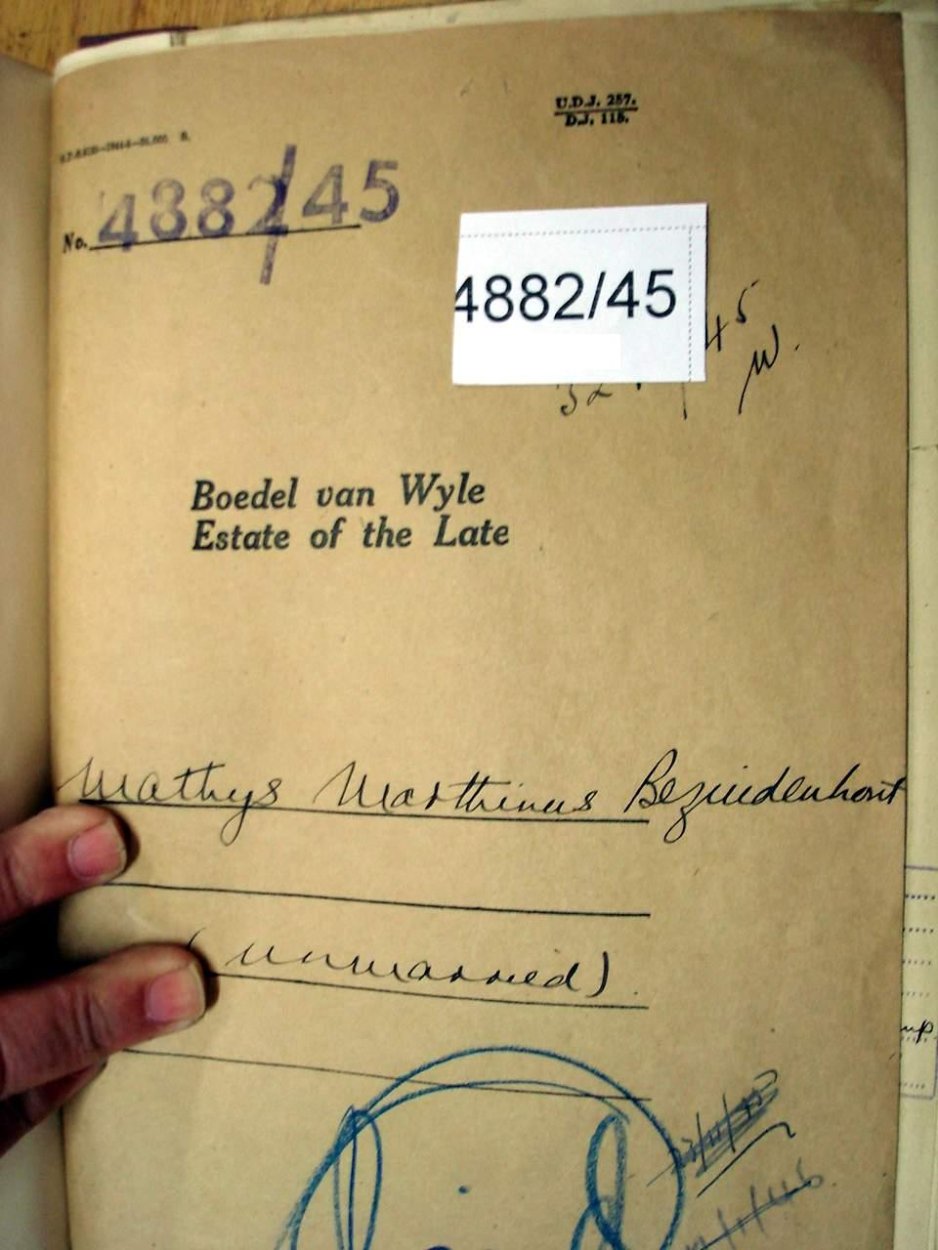 U.D.J. 257.
D.J. 118.
No. 4882/45
4882/45
45
Boedel van Wyle
Estate of the Late
Mathys Marthinus Bezuidenhout
(unmarried).